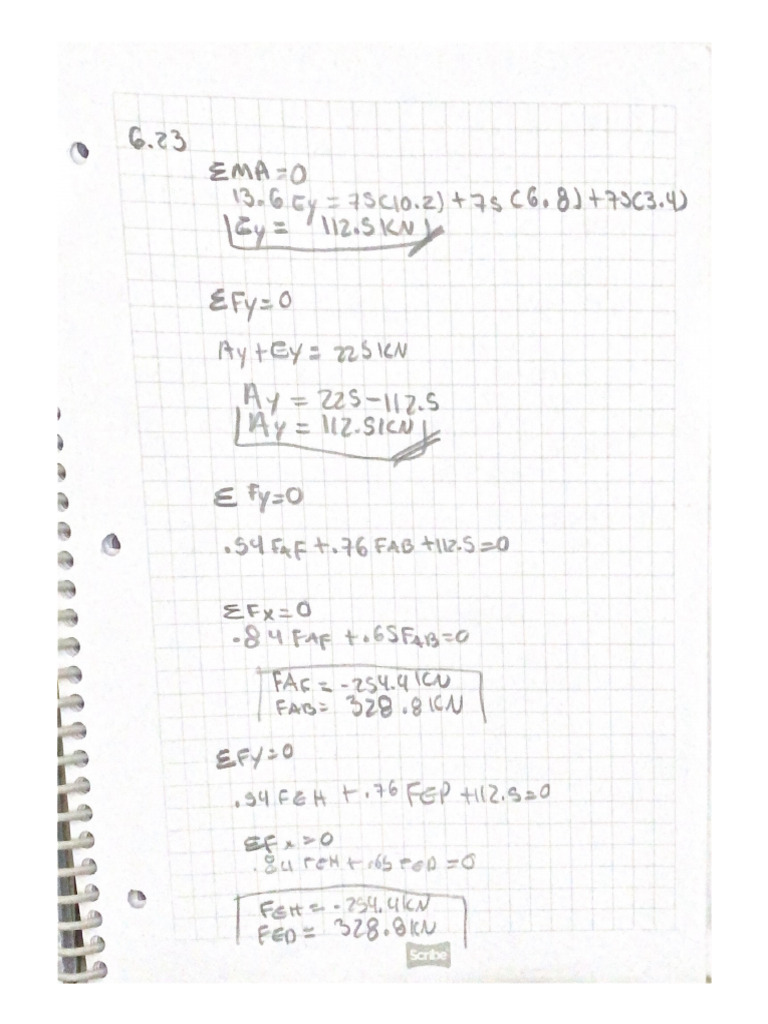 6.23
ΣMA=0
13.6 Ey = 75(10.2) + 75 (6.8) + 75(3.4)
Ey = 112.5 KN
ΣFy=0
Ay + Ey = 225 KN
Ay = 225-112.5
Ay = 112.5 KN
Σ Fy=0
.54 FAF +.76 FAB +112.5=0
ΣFx=0
.84 FAF +.65FAB=0
FAF = -254.4 KN
FAB= 328.8 KN
ΣFy=0
.54 FEH +.76 FEP +112.5=0
ΣFx=0
.84 FEH+.65 FED =0
FEH = -254.4 KN
FED = 328.8 KN
Scribe